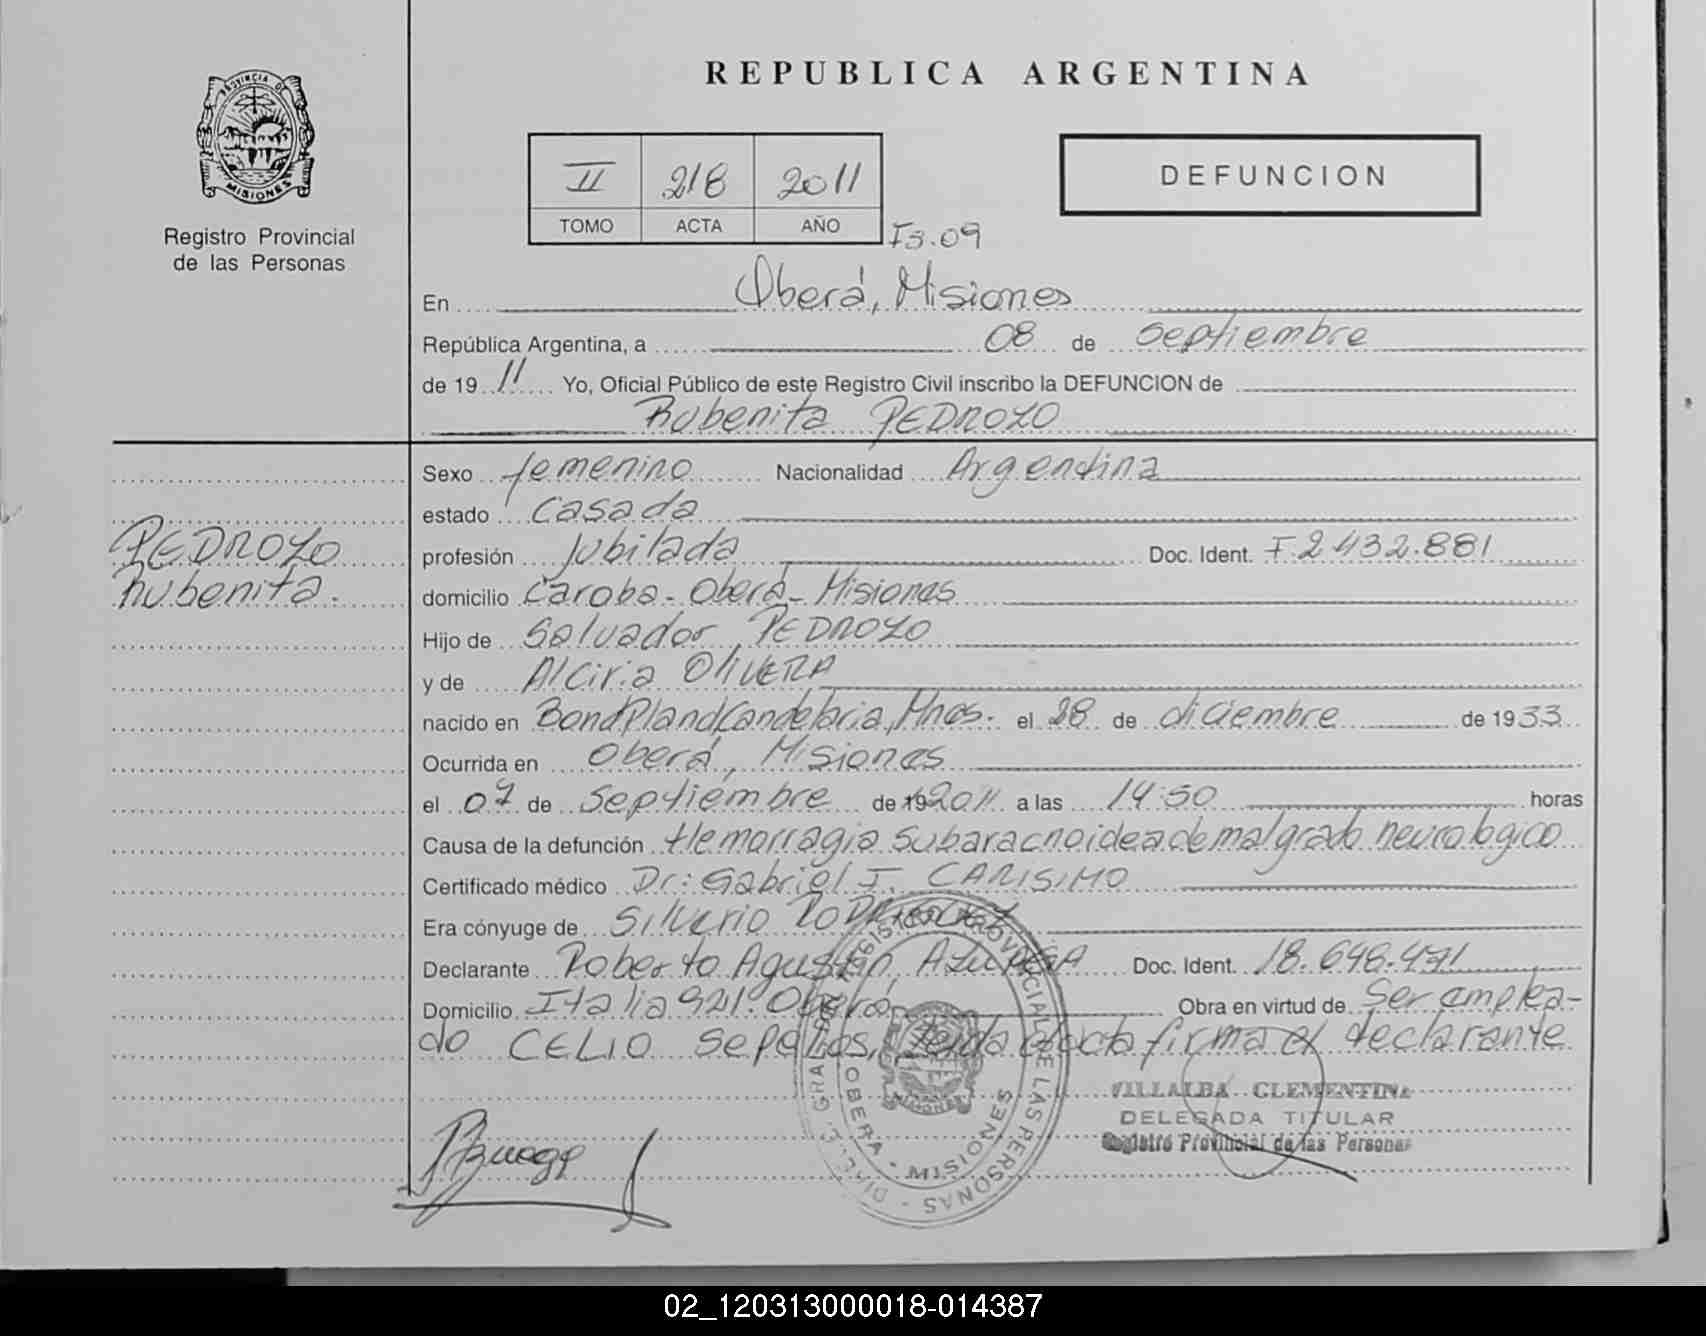 REPUBLICA ARGENTINA
PROVINCIA DE
MISIONES
Registro Provincial
de las Personas
II 218 2011
TOMO ACTA AÑO
DEFUNCION
09
En Oberá, Misiones
República Argentina, a 08 de septiembre
de 19 11 Yo, Oficial Público de este Registro Civil inscribo la DEFUNCION de
Rubenita PEDROZO
PEDROZO
Rubenita.
Sexo femenino Nacionalidad Argentina
estado Casada
profesión Jubilada Doc. Ident. F.2432.881
domicilio Caroba - Oberá - Misiones
Hijo de Salvador PEDROZO
y de Alciria OLIVERA
nacido en BondPlandCandelaria, Mnes. el 28 de diciembre de 1933
Ocurrida en Oberá, Misiones
el 07 de Septiembre de 19 2011 a las 14:50 horas
Causa de la defunción Hemorragia subaracnoidea de mal grado neurologico
Certificado médico Dr: Gabriel I. CARISIMO
Era cónyuge de Silverio
Declarante Roberto Agustin Doc. Ident. 18.648.471
Domicilio Italia 921. Oberá Obra en virtud de Ser emplea-
do CELIO Sepelios, leida el acta firma el declarante
VILLALBA CLEMENTINA
DELEGADA TITULAR
Registro Provincial de las Personas
REGISTRO PROVINCIAL DE LAS PERSONAS
OBERA - MISIONES
02_120313000018-014387